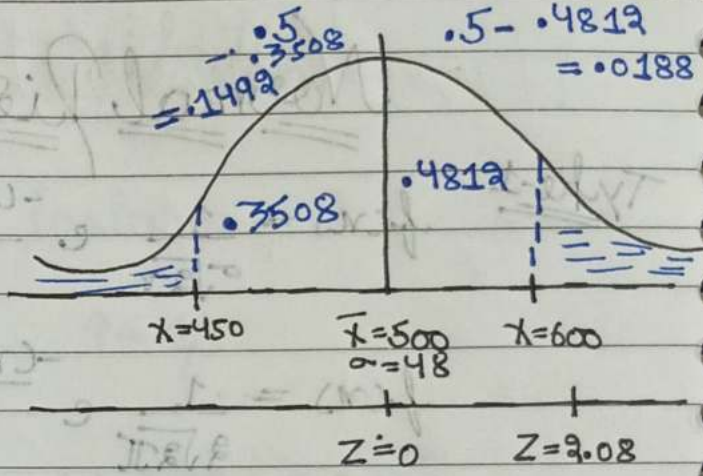 .5
- .3508
= .1492
.5 - .4812
= .0188
.3508
.4812
X=450
x̄=500
σ=48
X=600
Z=0
Z=2.08